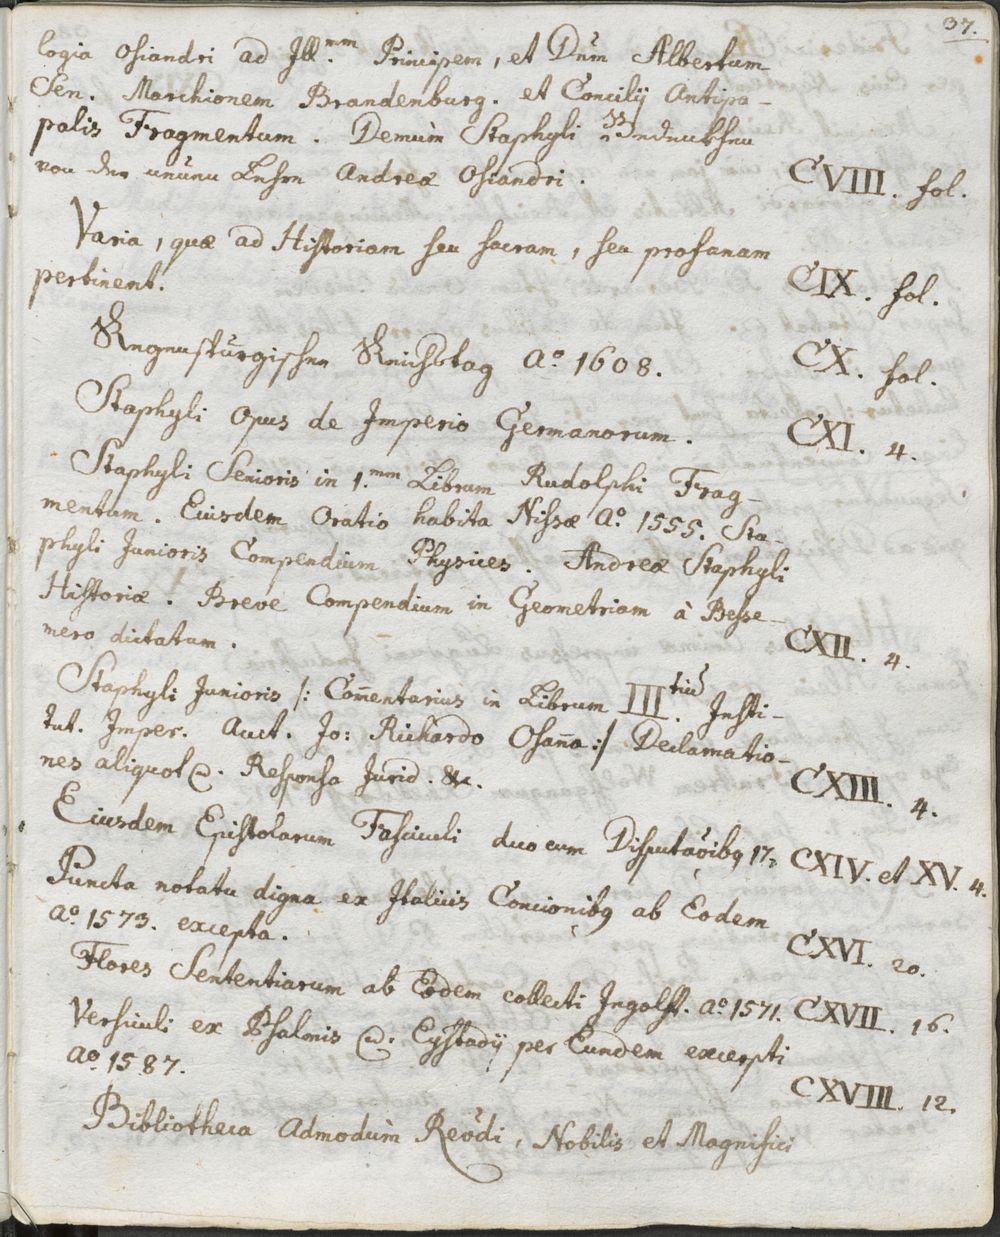 37.
logia Osiandri ad Ill.mm Principem, et Dn̄m Albertum
Sen. Marchionem Brandenburg. et Concilij Antipa-
palis Fragmentum. Demùm Staphyli
von der Andreæ Osiandri. CVIII. fol.
Varia, quæ ad Historiam seu sacram, seu profanam
pertinent. CIX. fol.
Regenspurgischer Reichstag Ao. 1608. CX. fol.
Staphyli Opus de Imperio Germanorum. CXI. 4.
Staphyli Senioris in 1.mm Librum Rudolphi Frag-
mentum. Eiusdem Oratio habita Nissæ Ao. 1555. Sta-
phyli Junioris Compendium Physices. Andreæ Staphyli
Historiæ. Breve Compendium in Geometriam à Besse-
mero dictatum. CXII. 4.
Staphyli Junioris /: Com̄entarius in Librum III.tiū Insti-
tut. Imper. Auct. Jo: Richardo Osan̄a :/ Declamatio-
nes aliquot &. Responsa Jurid. &c. CXIII. 4.
Eiusdem Epistolarum Fasciculi duo cum Disputaōibq 17. CXIV. et XV. 4.
Puncta notatu digna ex Italicis Concionibq ab Eodem
ao. 1573. excepta. CXVI. 20.
Flores Sententiarum ab Eodem collecti Ingolst. ao. 1571. CXVII. 16.
Versiculi ex Psalmis &. Eystadij per Eundem excerpti
ao. 1587. CXVIII. 12.
Bibliotheca Admodùm Rev̄di, Nobilis et Magnifici